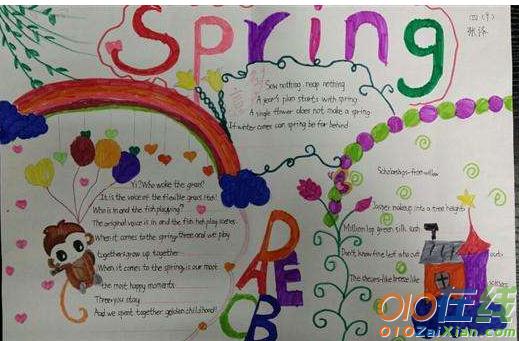 Spring
四(
张泽
Sow nothing, reap nothing
A year's plan starts with spring
A single flower does not make a spring
If winter comes can spring be far behind
Yi? Who woke the grass?
It is the voice of the flexible grass
Who is in and the fish playing?
The original voice is in and the fish
When it comes to the spring, three and we play
together, grow up together
When it comes to the spring, is our most
the most happy moments
Three you stay
And we spent together golden childhood!
Scholarships-from willow
Jasper makeup into a tree heights
Million lop green silk sash
Don't know fine leaf who cut
The shears-like breeze like
A
E
B
010在线
010ZaiXian.com